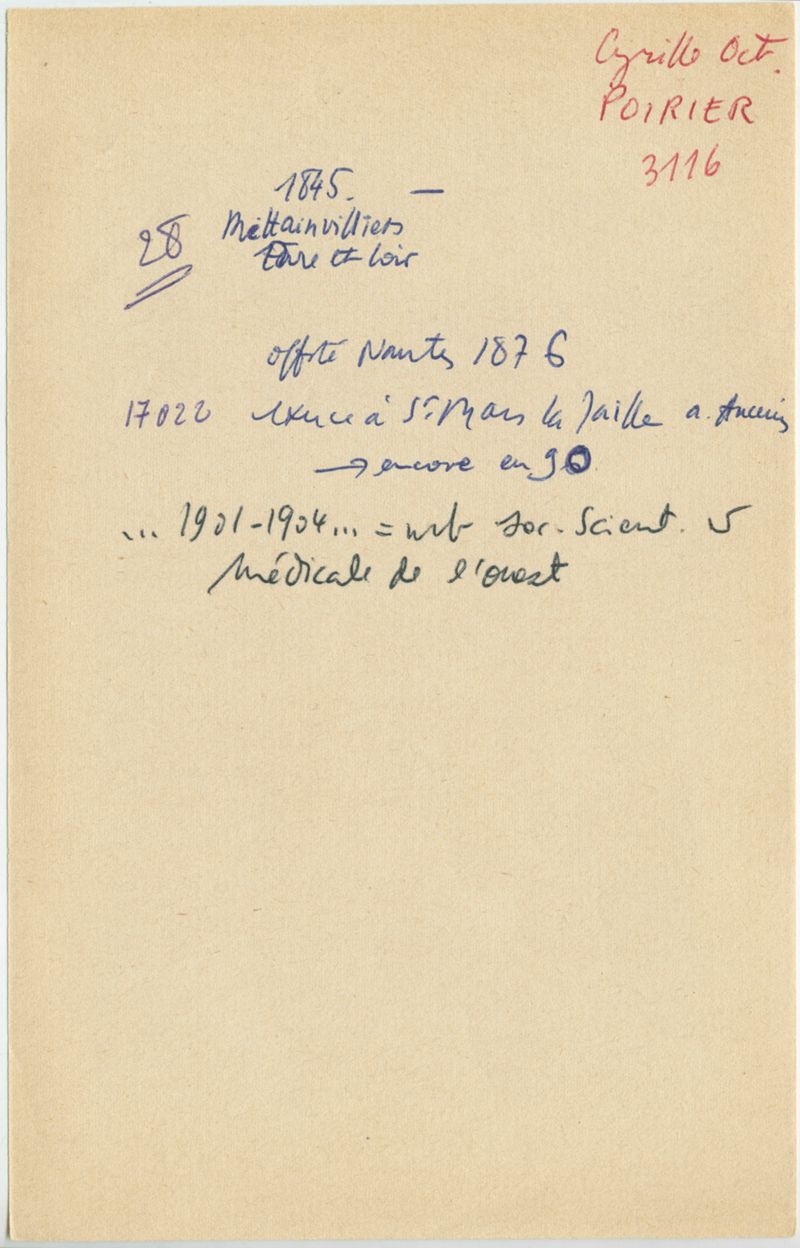 Cyrille Oct.
POIRIER
3116
1845. —
28 Mittainvilliers
Eure et Loir
offsté Nantes 1876
17022 exerce à St Mars la Jaille a. Ancenis
→ encore en 90
... 1901-1904... = mb soc. Scient. &
Médicale de l'ouest